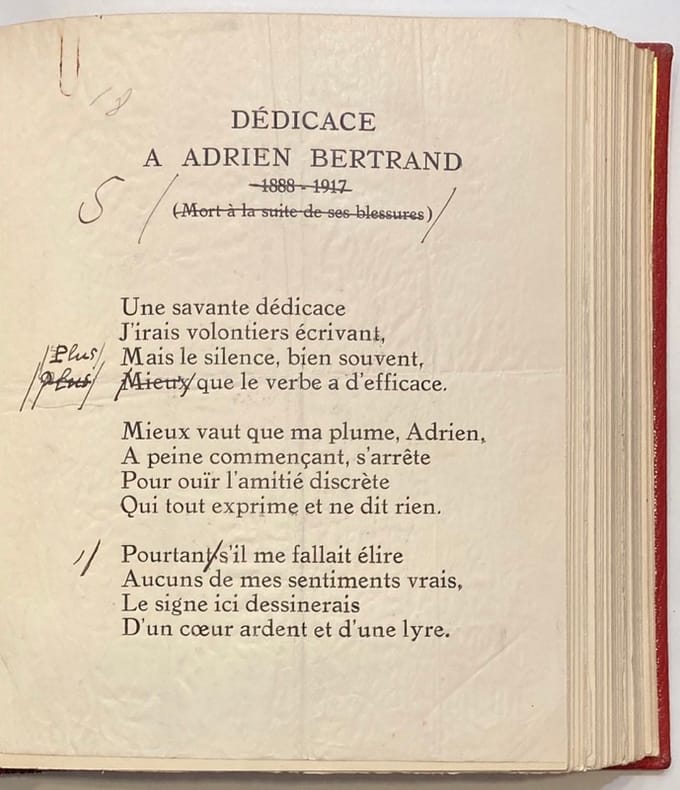 18
DÉDICACE
A ADRIEN BERTRAND
1888 - 1917
(Mort à la suite de ses blessures)
Une savante dédicace
J'irais volontiers écrivant,
Plus
Mais le silence, bien souvent,
plus
Mieux que le verbe a d'efficace.
Mieux vaut que ma plume, Adrien,
A peine commençant, s'arrête
Pour ouïr l'amitié discrète
Qui tout exprime et ne dit rien.
Pourtant s'il me fallait élire
Aucuns de mes sentiments vrais,
Le signe ici dessinerais
D'un cœur ardent et d'une lyre.